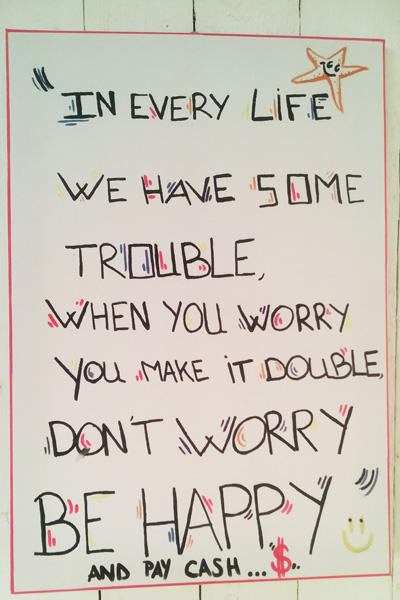 "IN EVERY LIFE
WE HAVE SOME
TROUBLE,
WHEN YOU WORRY
YOU MAKE IT DOUBLE,
DON'T WORRY
BE HAPPY"
AND PAY CASH...$..